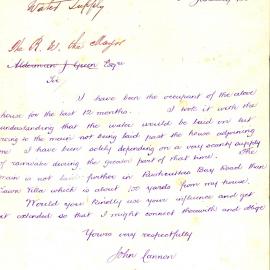 Water Supply
The R. W. the Mayor
Alderman J Green Esqre
Sir
I have been the occupant of the above
house for the last 12 months. I took it with the
understanding that the water would be laid on but
owing to the main not being laid past the house adjoining
me I have been solely depending on a very scanty supply
of rainwater during the greater part of that time. The
main is not laid further in Rushcutters Bay Road than
Lawn Villa which is about 100 yards from my house.
Would you kindly use your influence and get
it extended so that I might connect therewith and oblige
Yours very respectfully
John Cannon